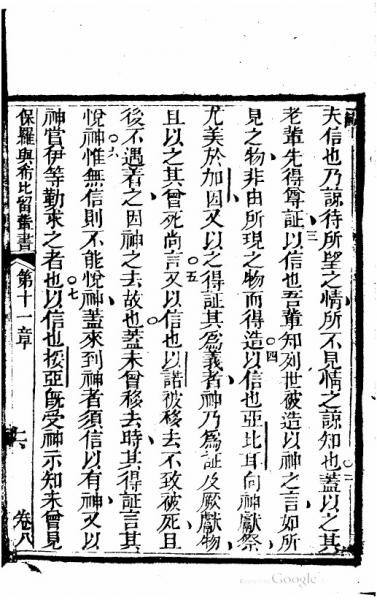 夫信也乃諒待所望之情所不見情之諒知也蓋以之其
老輩先得尊証以信也吾輩知列世被造以神之言如所
見之物非由所現之物而得造以信也亞比耳向神獻祭
尤美於加因又以之得証其為義者神乃為証及厥獻物
且以之其曾死尚言又以信也以諾被移去不致被死且
後不遇着之因神之去故也蓋未曾移去時其得証言其
悅神惟無信則不能悅神蓋來到神者須信以有神又以
神嘗伊等勤求之者也以信也挼亞旣受神示知未曾見
保羅與希比留輩書 第十一章 六 卷八
二
三
四
五
六
七
Google